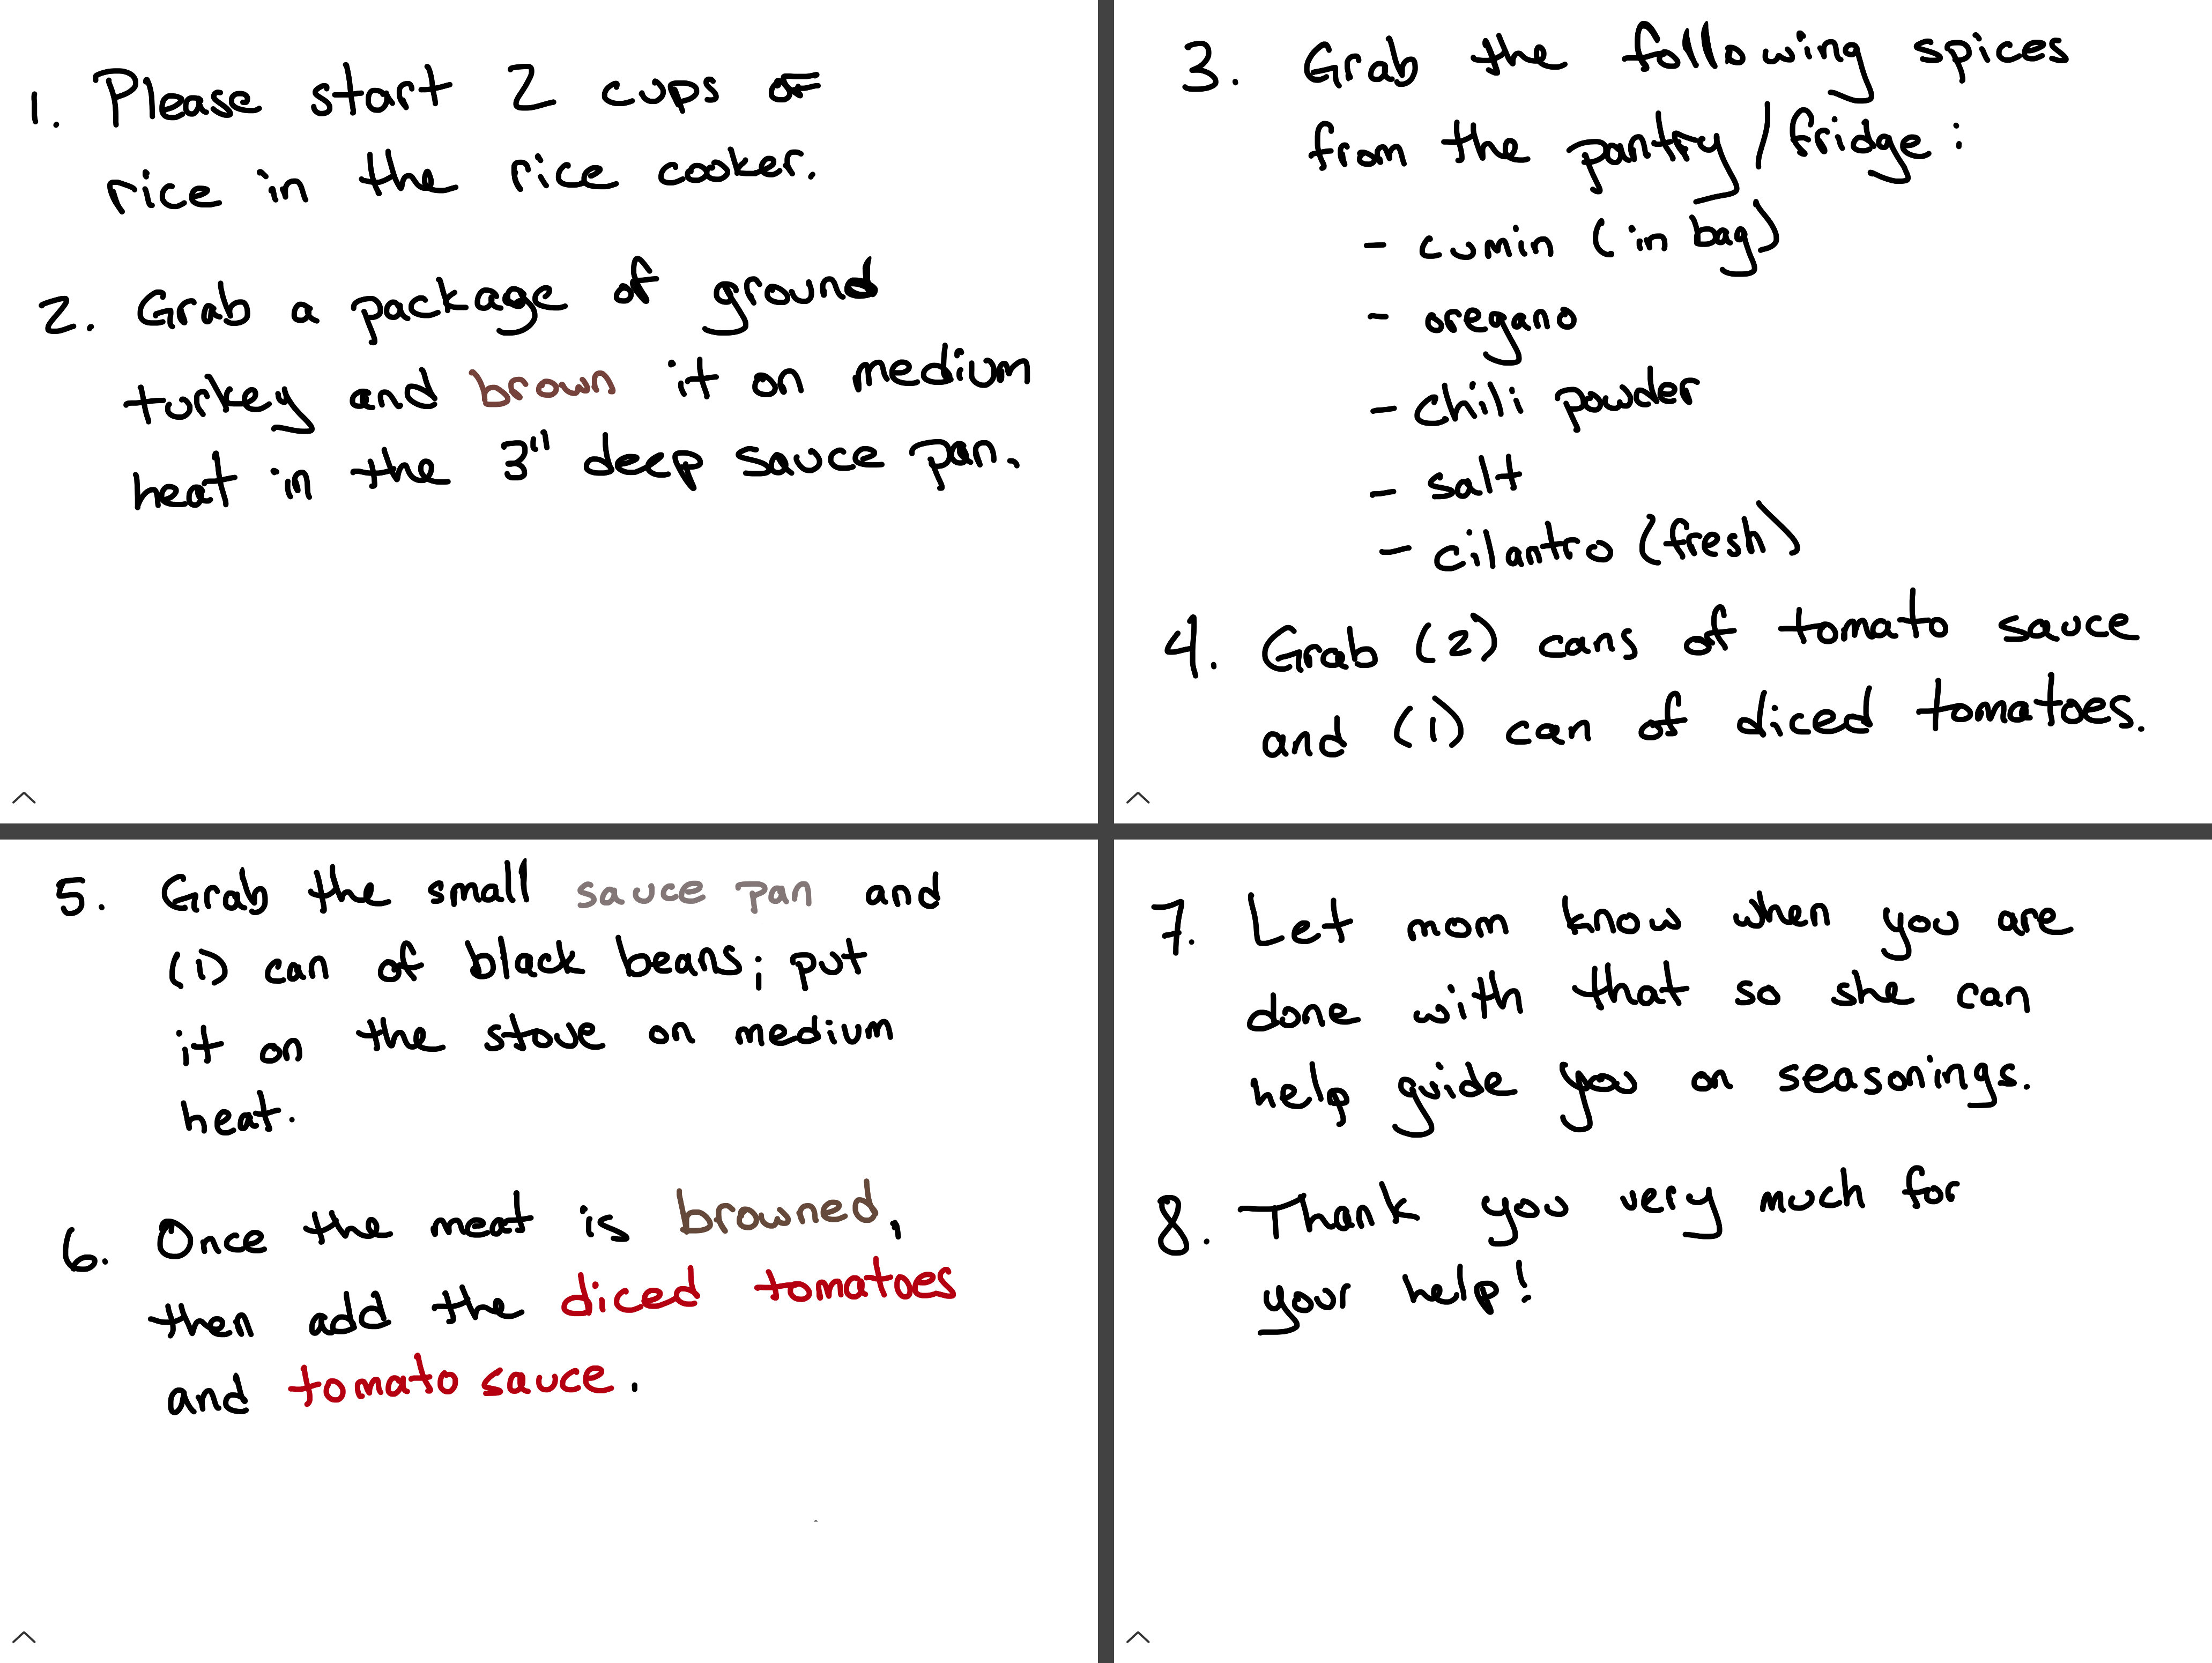 1. Please start 2 cups of
rice in the rice cooker.
2. Grab a package of ground
turkey and brown it on medium
heat in the 3" deep sauce pan.
3. Grab the following spices
from the pantry/fridge:
- cumin (in bag)
- oregano
- chili powder
- salt
- cilantro (fresh)
4. Grab (2) cans of tomato sauce
and (1) can of diced tomatoes.
5. Grab the small sauce pan and
(1) can of black beans; put
it on the stove on medium
heat.
6. Once the meat is browned,
then add the diced tomatoes
and tomato sauce.
7. Let mom know when you are
done with that so she can
help guide you on seasonings.
8. Thank you very much for
your help!